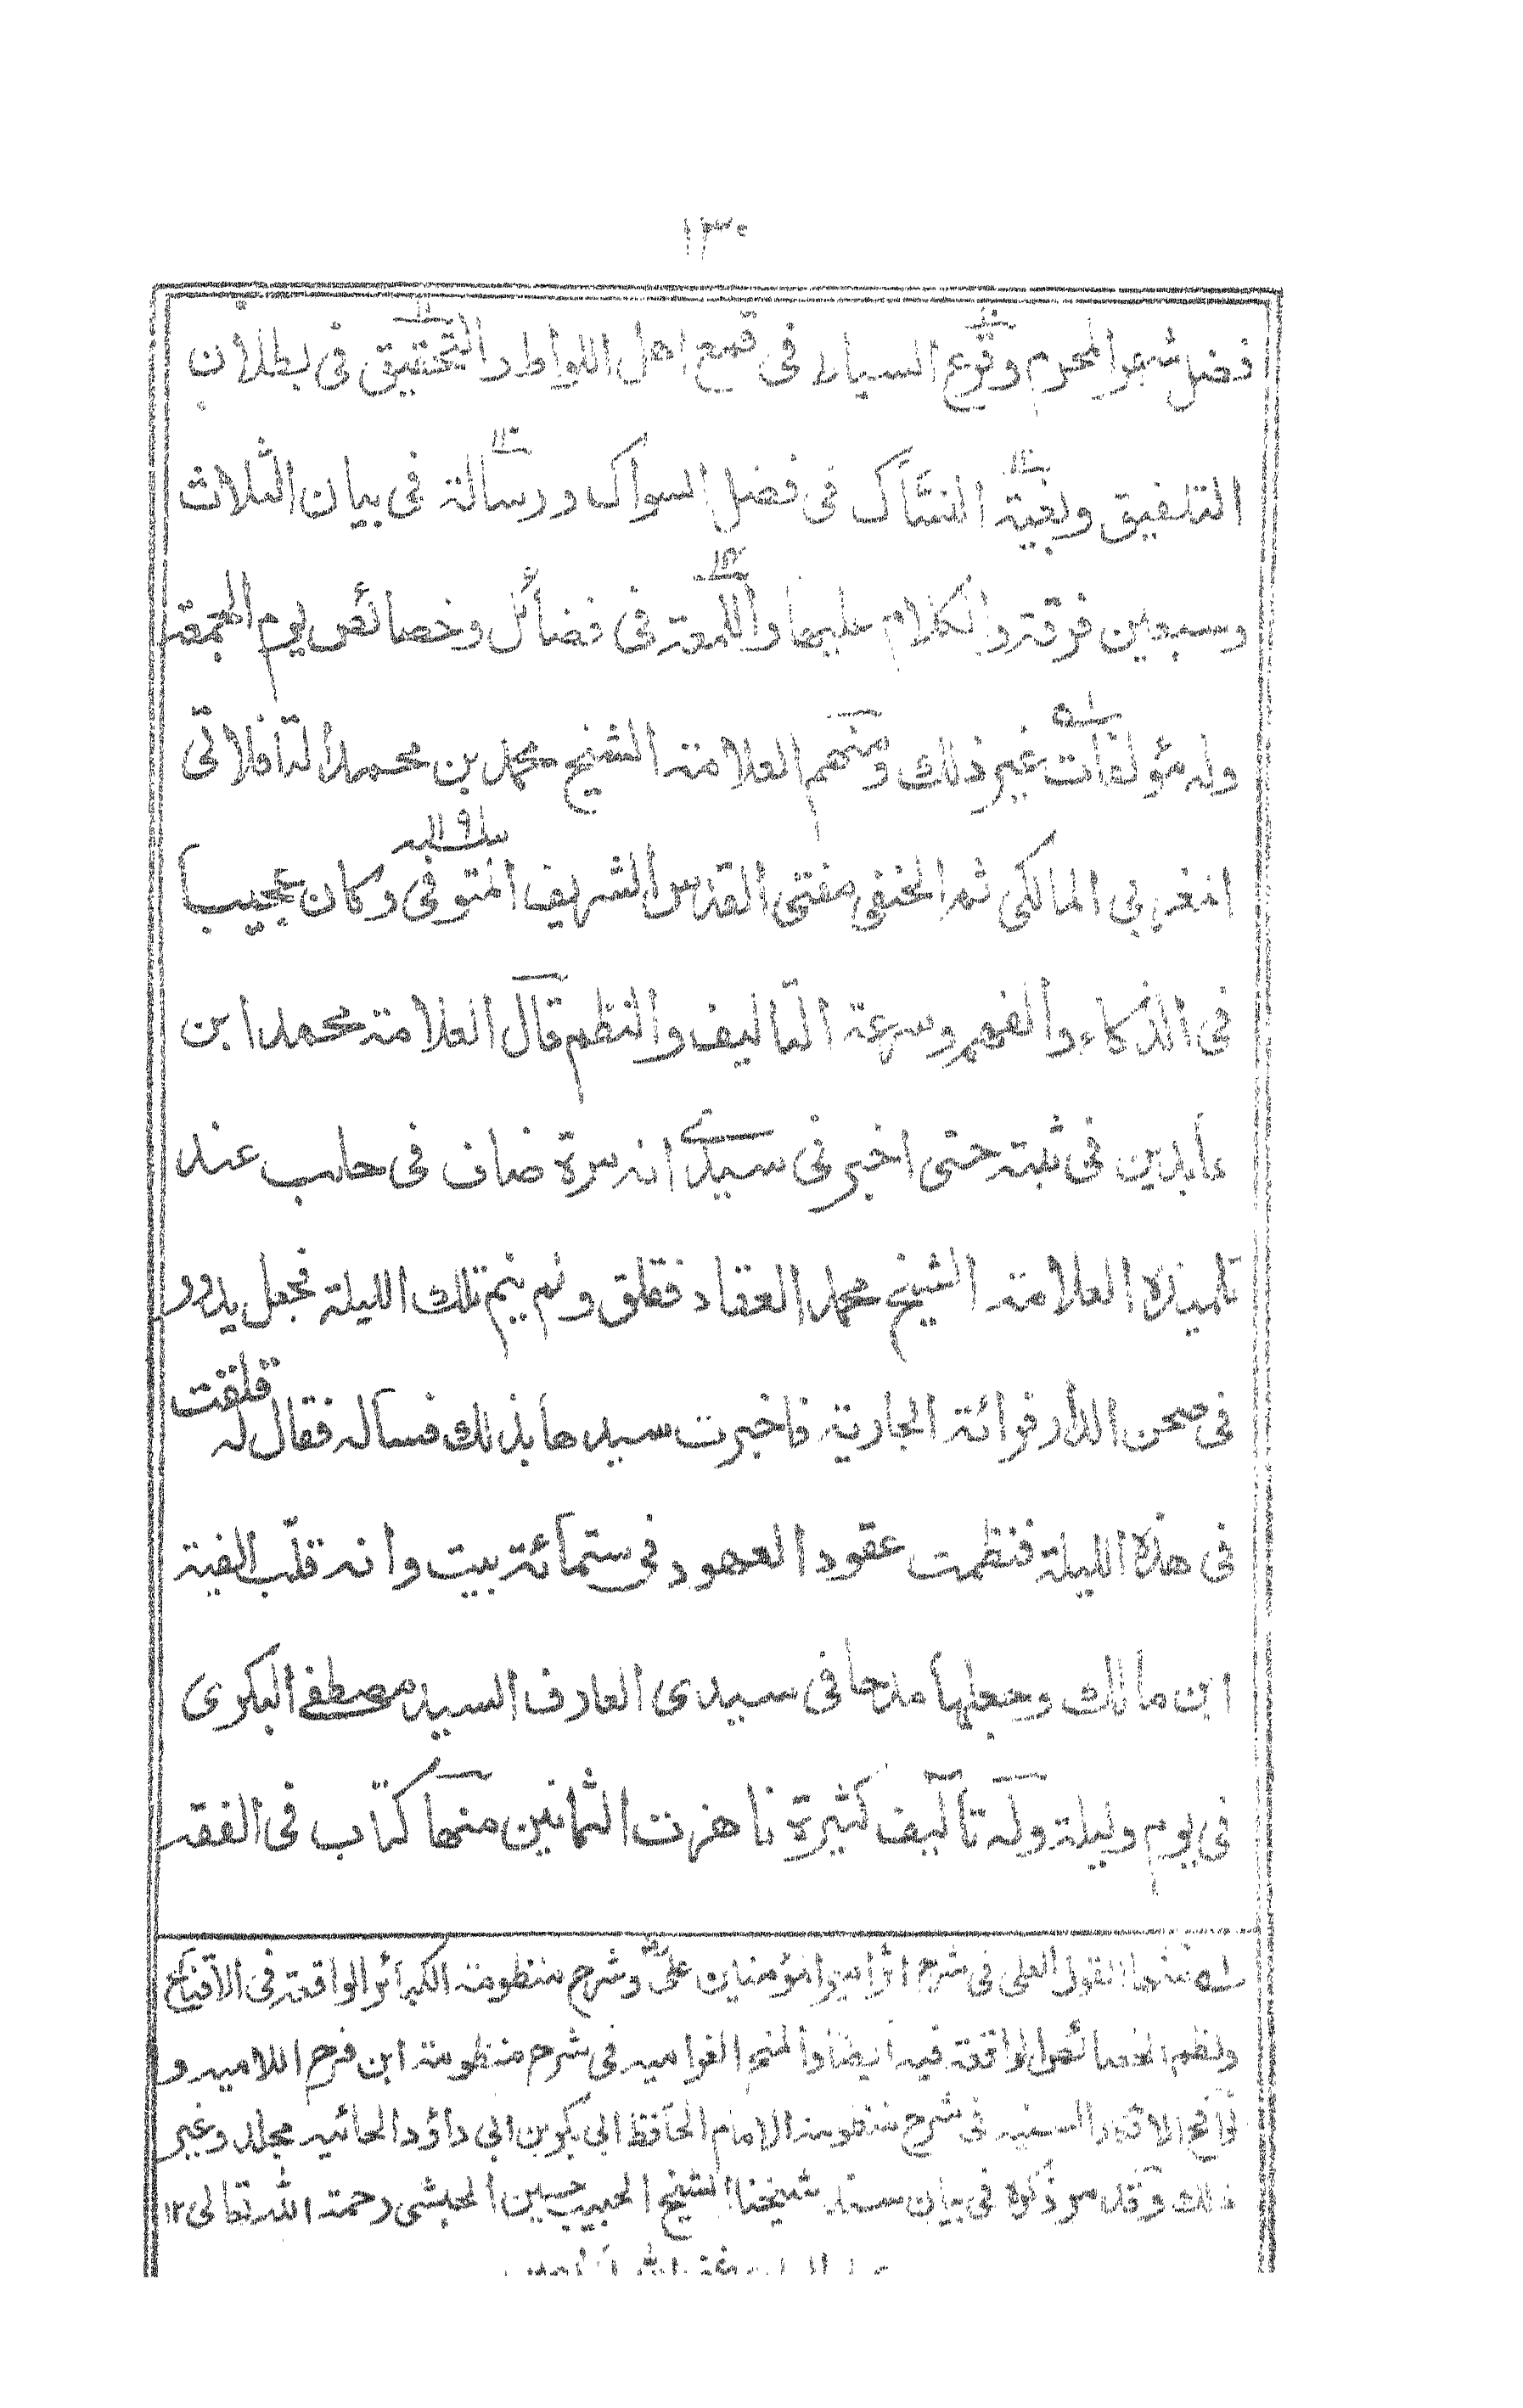 ١٣٠
فضل شهر المحرم وقرع السياط فى قمع اهل اللواط والتحقيق فى بطلان
التلفيق وبغية النساك فى فضل السواك ورسالة فى بيان الثلاث
وسبعين فرقة والكلام عليها واللمعة فى فضائل وخصائص يوم الجمعة
وله مؤلفات غير ذلك ومنهم العلامة الشيخ محمد بن محمد التافلاتى
المغربى المالكى ثم الحنفى مفتى القدس الشريف المتوفى وكان عجيبا
فى الذكاء والفهم وسرعة التاليف والنظم قال العلامة محمد ابن
عابدين فى ثبته حتى اخبرنى سيدى انه مرة ضاف فى حلب عند
تلميذه العلامة الشيخ محمد العقاد فقلق ولم ينم تلك الليلة فجعل يدور
فى صحن الدار فرائة الجارية فاخبرت سيدها بذلك فساله فقال له قلقت
فى هذه الليلة فنظمت عقود العهود فى ستمائة بيت وانه قلب الفية
ابن مالك وجعلها مدحا فى سيدى العارف السيد مصطفے البكرى
فى يوم وليلة وله تآليف كثيرة ناهزت الثمانين منها كتاب فى الفقه
منها القول العلى فى شرح اثر امير المؤمنين على وشرح منظومة الكبائر الواقعة فى الاقناع
ونظم الخصائص الواقعة فيه ايضا والمنح الغرامية فى شرح منظومة ابن فرح اللامية و
لوائح الانوار السنية فى شرح منظومة الامام الحافظ ابى بكر بن ابى داؤد الحائية مجلد وغير
ذلك وقد مر ذكره فى بيان سند شيخنا الشيخ الحبيب حسين الحبشى رحمة الله تعالى ١٢